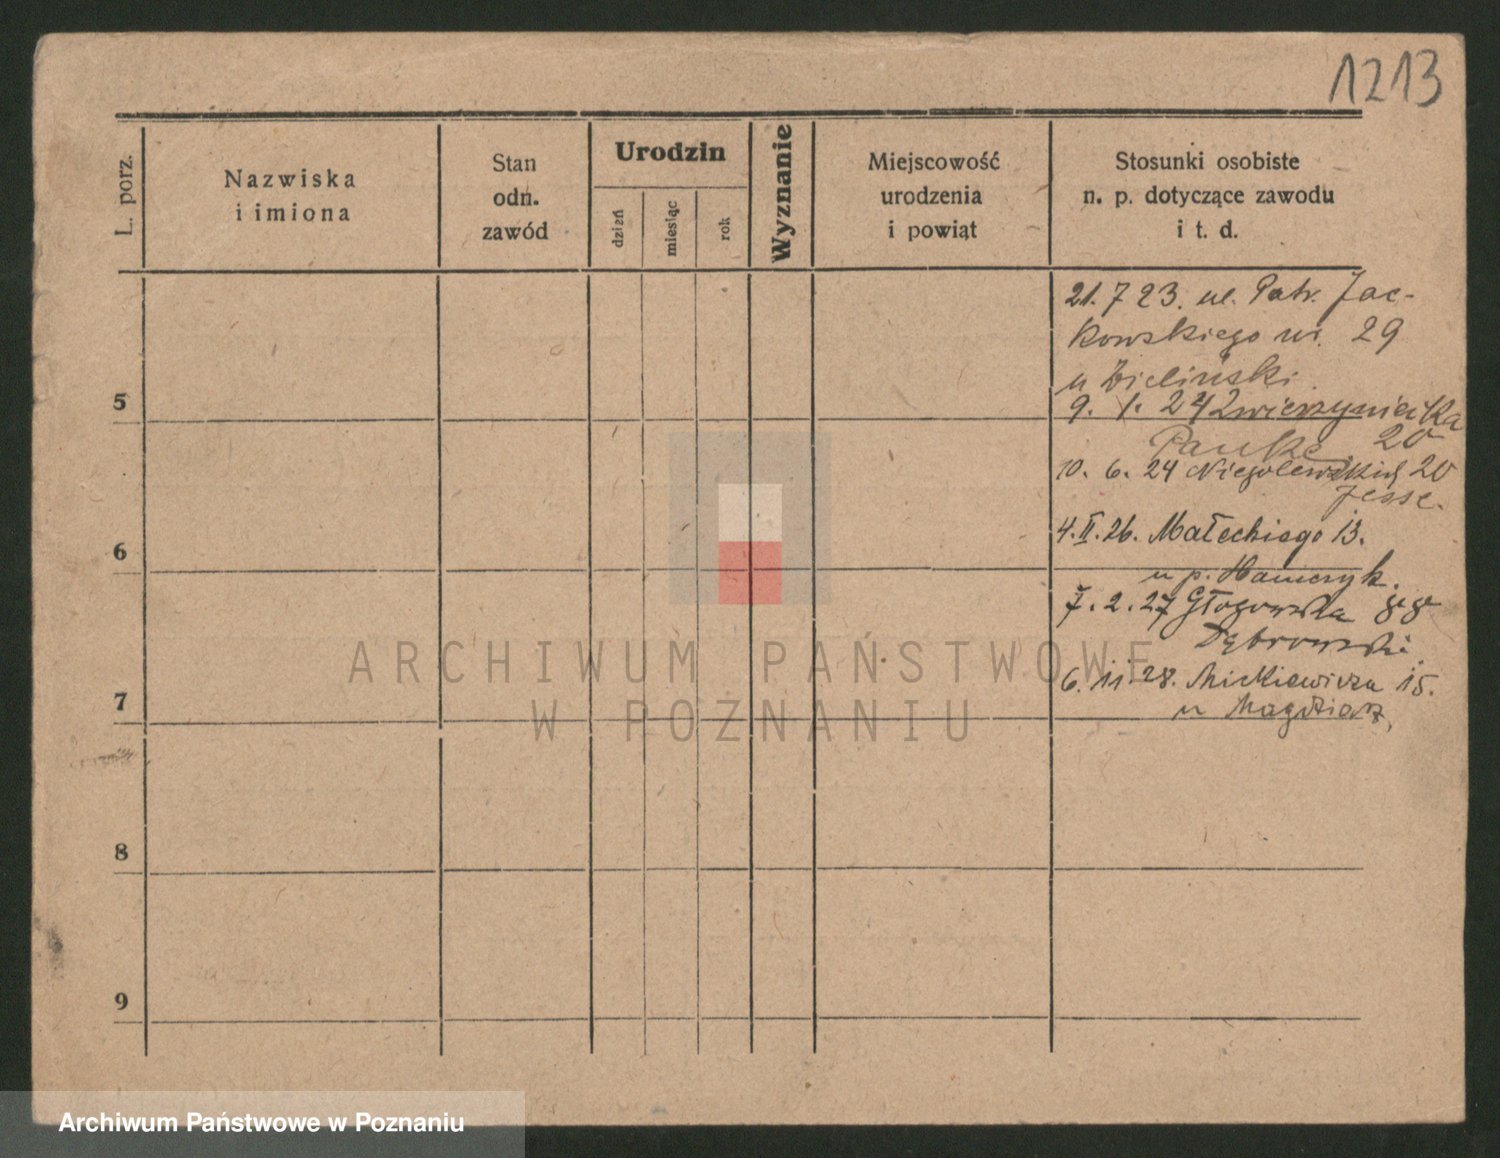 1213
L. porz.
Nazwiska
i imiona
Stan
odn.
zawód
Urodzin
dzień
miesiąc
rok
Wyznanie
Miejscowość
urodzenia
i powiąt
Stosunki osobiste
n. p. dotyczące zawodu
i t. d.
21. 7 23. ul. Patr. Jac-
kowskiego nr. 29
u Zieliński
5
9. 1. 24 Zwierzyniecka
20
10. 6. 24 Niegolewskich 20
Jesse.
4. II. 26. Małeckiego 13.
6
u p.
7. 2. 27 Głogowska 88
Dąbrowski
6. 11. 28. Mickiewicza 15.
7
u Magdziarz
8
9
ARCHIWUM PAŃSTWOWE
W POZNANIU
Archiwum Państwowe w Poznaniu